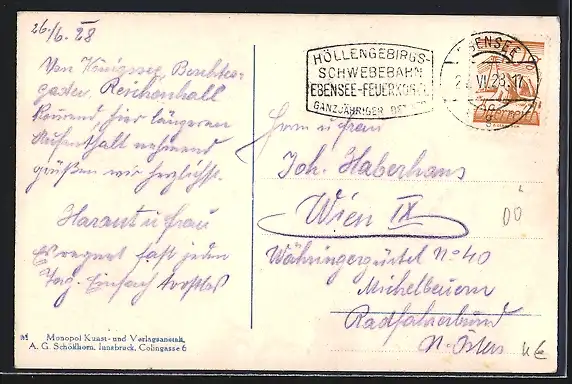 26./6. 28
Von Königssee, Berchtes-
gaden, Reichenhall
kommend, hier längeren
Aufenthalt nehmend
grüßen wir herzlichst.
Haraut u. Frau
Es regnet fast jeden
Tag. Einfach trostlos
HÖLLENGEBIRGS-
SCHWEBEBAHN
EBENSEE-FEUERKOGEL
GANZJÄHRIGER
EBENSEE
VI 28 17
Herrn u. Frau
Joh. Haberhans
Wien IX
Währingergürtel No 40
Michelbeuern
Radfahrerbund
N. Öster
Monopol Kunst- und Verlagsanstalt,
A. G. Schöllhorn, Innsbruck, Colingasse 6